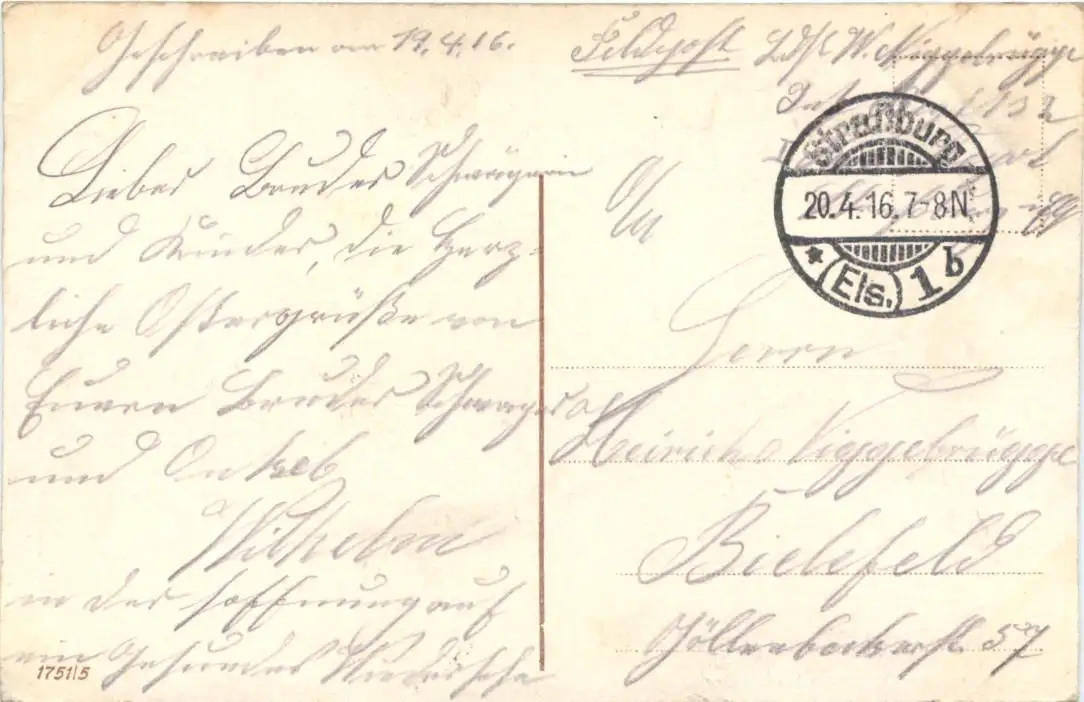 Geschreiben am 19.4.16.
Lieber Bruder Schwägerin
und Kinder, die Herz-
liche Ostergrüße von
Euren Bruder Schwager
und Onkel
Wilhelm
in der hoffnung auf
ein Gesundes Wiedersehn
1751/5
Feldpost Ldst W. Niggebrügge
Straßburg
20.4.16.7-8N.
* (Els.) 1b
Herrn
Heinrich Niggebrügge
Bielefeld
Göllenbeckerst. 57